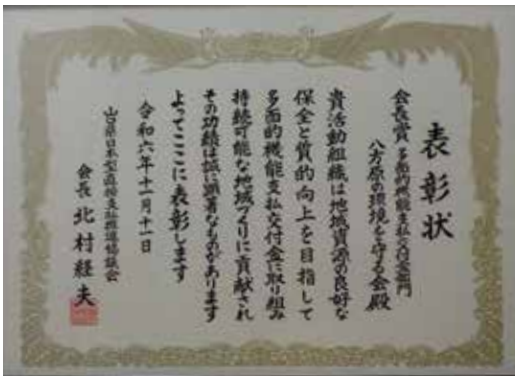 表彰状
会長賞 多面的機能支払交付金部門
八方原の環境を守る会殿
貴活動組織は地域資源の良好な
保全と質的向上を目指して
多面的機能支払交付金に取り組み
持続可能な地域づくりに貢献され
その功績は誠に顕著なものがあります
よってここに表彰します
令和六年十一月十一日
山口県日本型直接支払推進協議会
会長 北村経夫